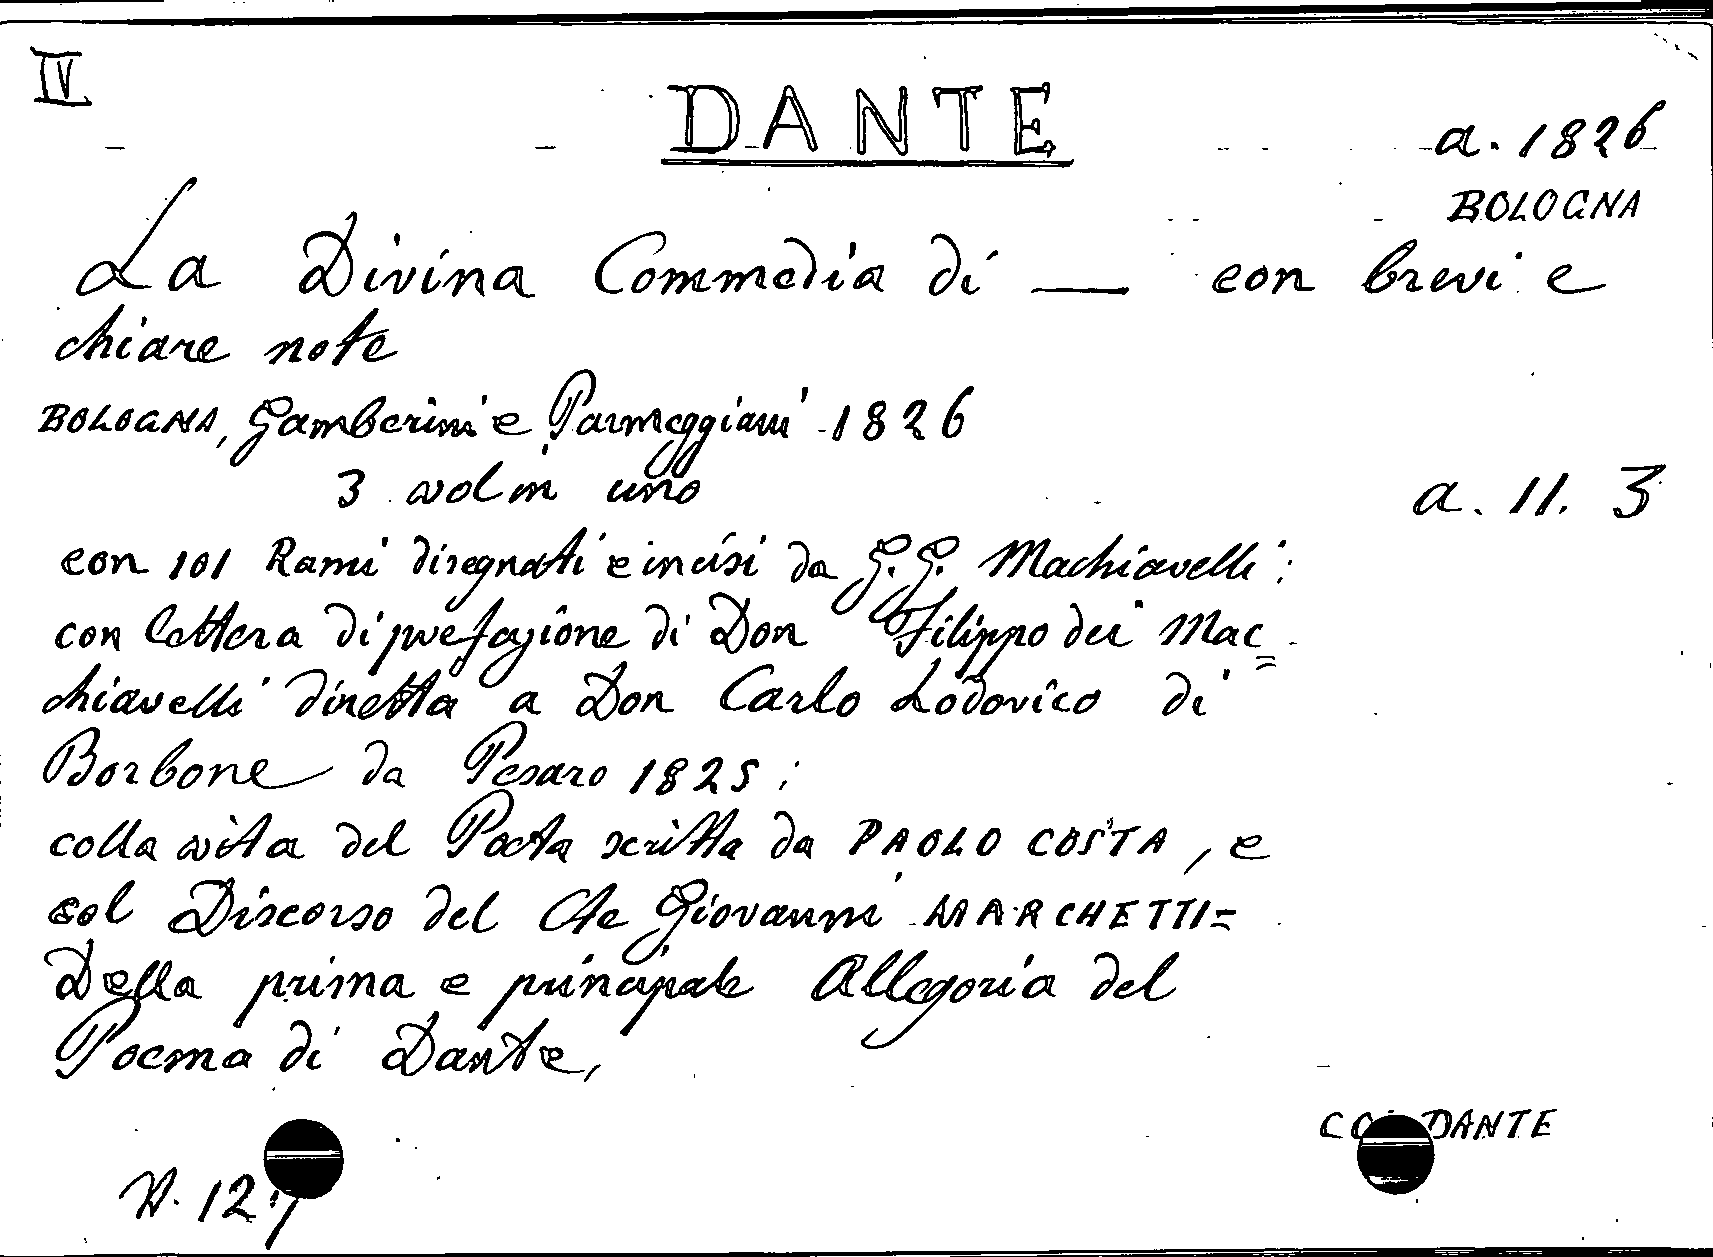 IV
DANTE
a. 1826
BOLOGNA
La Divina Commedia di — con brevi e
chiare note
BOLOGNA, Gamberini e Parmeggiani 1826
3 vol in uno
a. 11. 3
con 101 Rami disegnati e incisi da G. G. Machiavelli;
con lettera di prefazione di Don Filippo dei Mac=
chiavelli diretta a Don Carlo Lodovico di
Borbone da Pesaro 1825;
colla vita del Poeta scritta da PAOLO COSTA, e
col Discorso del Cte Giovanni MARCHETTI=
Della prima e principale Allegoria del
Poema di Dante,
DANTE
N. 127